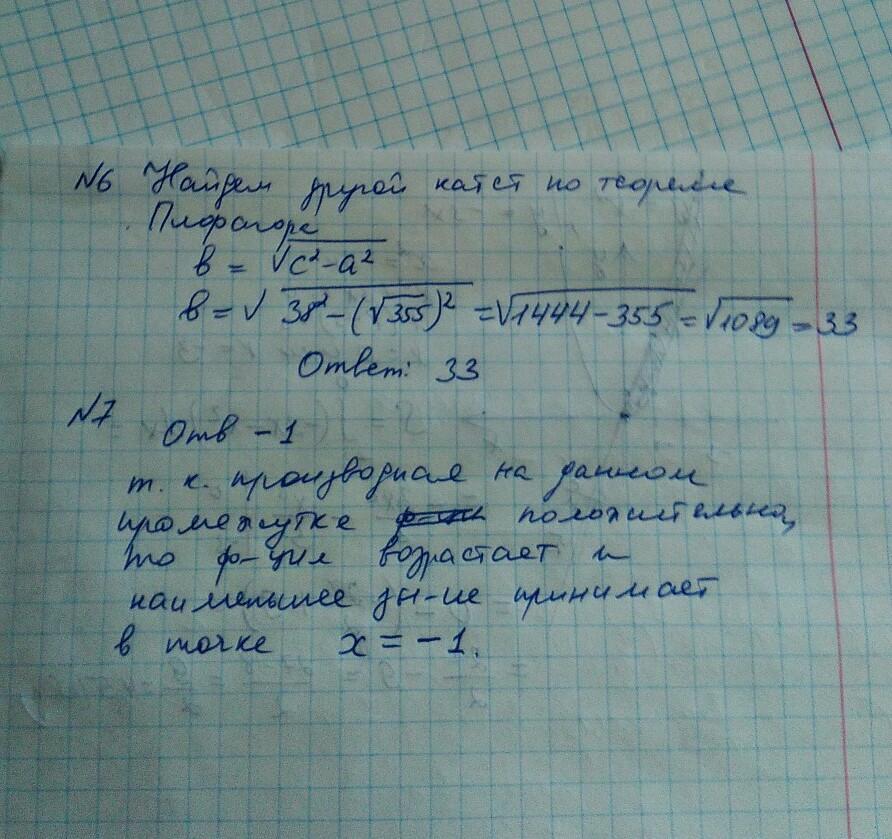 №6 Найдем другой катет по теореме
Пифагора
в = √c²-a²
в = √38²-(√355)² = √1444-355 = √1089 = 33
Ответ: 33
№7
Отв -1
т. к. производная на данном
промежутке положительна,
то ф-ция возрастает и
наименьшее зн-ие принимает
в точке x = -1.